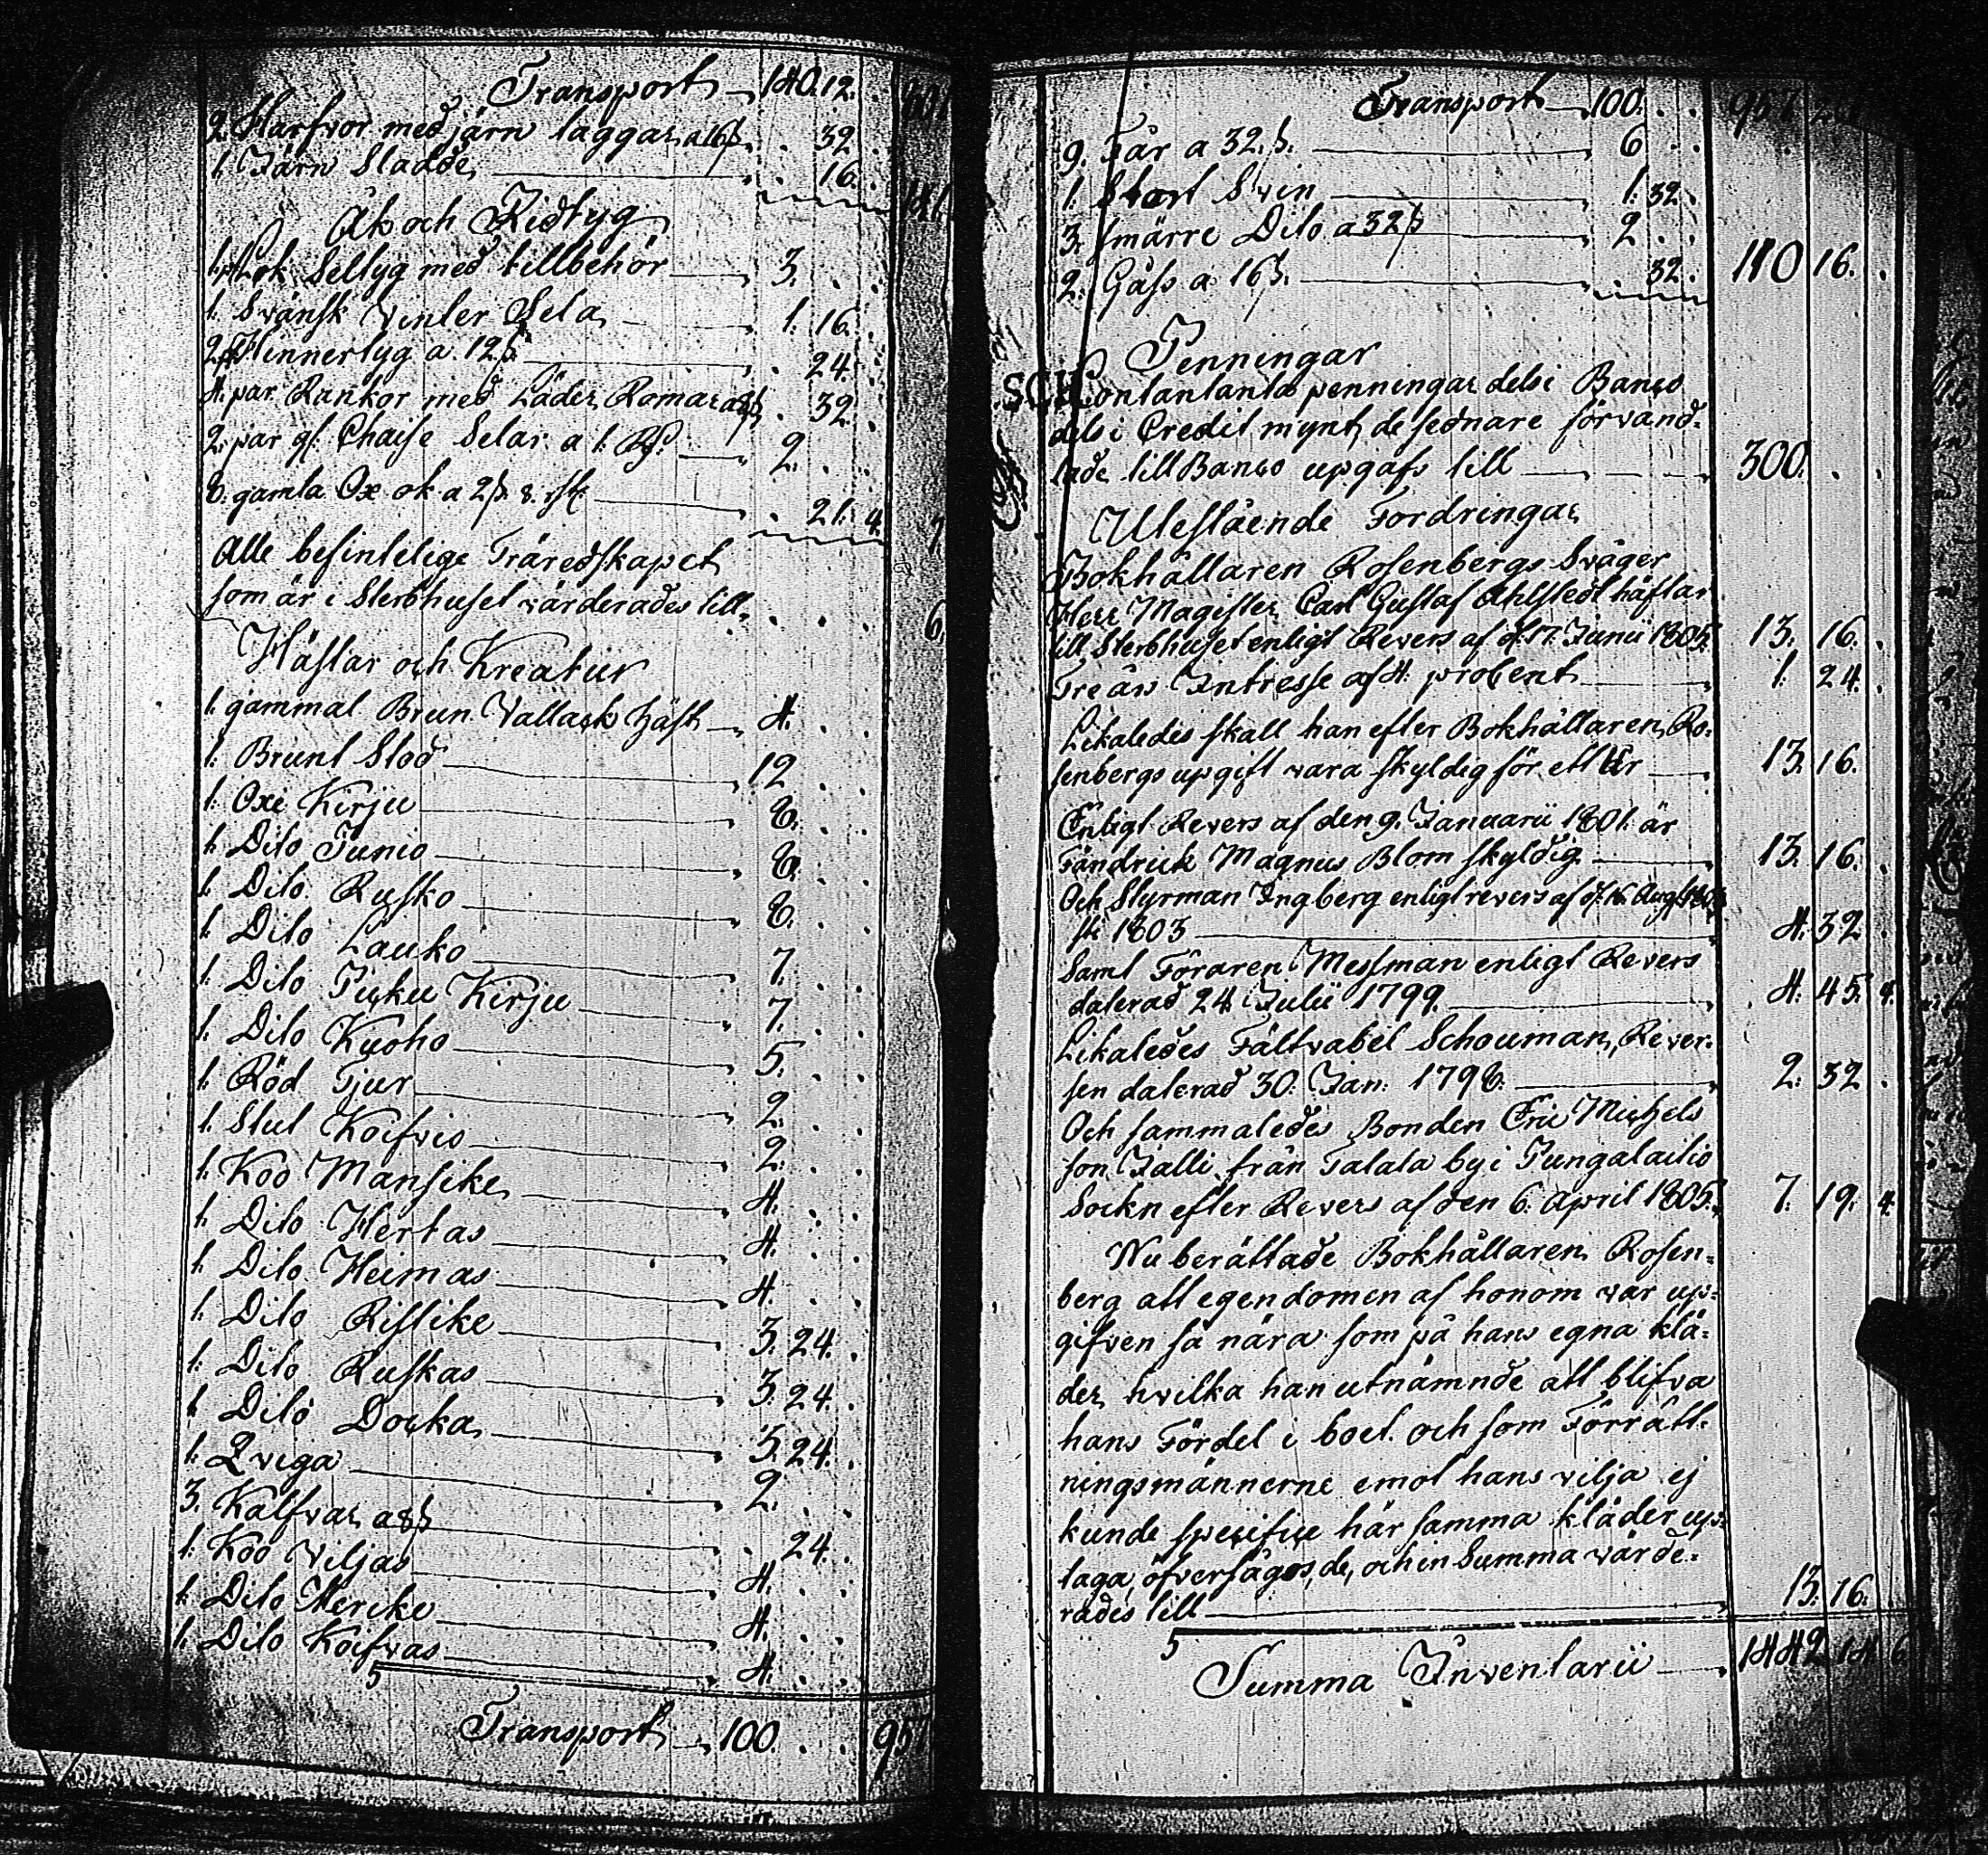 Transport 140. 12.
2 Harfvor med järn taggar a 16ß . 32.
1. Järn Sladde . 16.
Åk och Ridtyg
1. Lok Seltyg med tillbehör 3. . .
1. Svänsk Vinter Sela 1. 16.
2. Hinnertyg a 12ß . 24.
4. par Rankor med Läder Romar a 8ß . 32.
2. par gl. Chaise Selar a 1. Rd. 2. . .
8. gamla Ox ok a 2ß. 8. rst. . 21. 4.
Alle befintelige Träredskapet
som är i Sterbhuset värderades till . . . 6.
Hästar och Kreatur
1. gammal Brun Vallack häst 4. . .
1. Brunt Stod 12 . .
1. Oxe Kirju 8. . .
1. Dito Junio 8. . .
1. Dito Rusko 8. . .
1. Dito Lauko 7. . .
1. Dito Picku Kirju 7. . .
1. Dito Kuoho 5. . .
1. Röd Tjur 2. . .
1. Stut Koifvio 2. . .
1. Koo Mansike 4. . .
1. Dito Hertas 4. . .
1. Dito Heimas 4. . .
1. Dito Ristike 3. 24. .
1. Dito Ruskas 3. 24. .
1 Dito Docka 3. 24. .
1. Qviga 2. . .
3. Kalfvar a 8ß . 24. .
1. Koo Viljas 4. . .
1. Dito Mercke 4. . .
1. Dito Koifvas 4. . .
5
Transport 100. . . 957
Transport 100. . . 957
9. Får a 32.ß. 6 . .
1. Stort Svin 1. 32.
3. smärre Dito a 32ß 2 . .
2. Gäss a 16ß. . 32. 110 16. .
Penningar
Contantanta penningar dels i Banco
dels i Credit mynt, de sednare förvand-
lade till Banco upgafs till 300. . .
Utestående Fordringar
Bokhållaren Rosenbergs Svåger
Herr Magister Carl Gustaf Ahlstedt häftar
till Sterbhuset enligt Revers af d. 17. Junii 1805. 13. 16. .
Tre års Intresse af 4. procent 1. 24. .
Likaledes skall han efter Bokhållaren Ro-
senbergs upgift vara skyldig för ett År 13. 16.
Enligt Revers af den 9. Januarii 1801. är
Fändrick Magnus Blom skyldig 13. 16. .
Och Styrman Ingberg enligt revers af d. 16 Augu-
sti 1803 4. 32 .
Samt Föraren Messman enligt Revers
daterad 24 Julii 1799. 4. 45. 4.
Likaledes Fältvabel Schouman, Rever-
sen daterad 30. Jan: 1798. 2. 32 .
Och sammaledes Bonden Eric Michels
son Jalli från Talala by i Pungalaitio
Sockn efter Revers af den 6. April 1805. 7. 19. 4.
Nu berättade Bokhållaren Rosen-
berg att egendomen af honom var up-
gifven så nära som på hans egna klä-
der, hvilka han utnämnde att blifva
hans Fördel i boet. och som Förrätt-
ningsmännerne emot hans vilja ej
kunde specifice här samma kläder up-
taga, öfversågos, de, och in Summa värde-
rades till 13. 16.
5
Summa Inventarii 1442 14 6